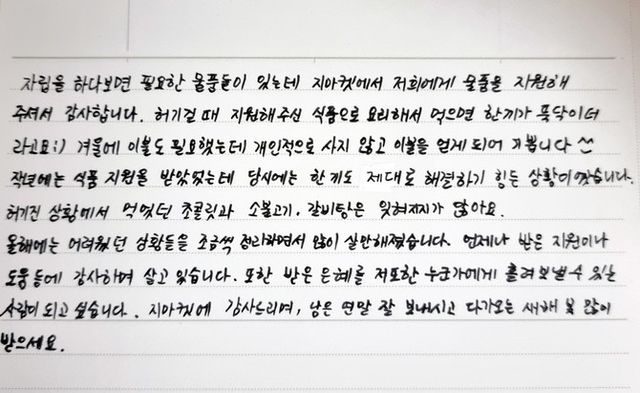 자립을 하다보면 필요한 물품들이 있는데 지마켓에서 저희에게 물품을 지원해
주셔서 감사합니다. 허기질 때 지원해주신 식품으로 요리해서 먹으면 한끼가 뚝딱이더
라고요:) 겨울에 이불도 필요했는데 개인적으로 사지 않고 이불을 얻게 되어 기쁩니다 ^^
작년에는 식품 지원을 받았었는데 당시에는 한끼도 제대로 해결하기 힘든 상황이었습니다.
허기진 상황에서 먹었던 초콜릿과 소불고기, 갈비탕은 잊혀지지가 않아요.
올해에는 어려웠던 상황들을 조금씩 정리하면서 많이 실안해졌습니다. 언제나 받은 지원이나
도움등에 감사하며 살고 있습니다. 또한 받은 은혜를 저 또한 누군가에게 흘려보낼 수 있는
사람이 되고 싶습니다. 지마켓에 감사드리며, 남은 연말 잘 보내시고 다가오는 새해 복 많이
받으세요.